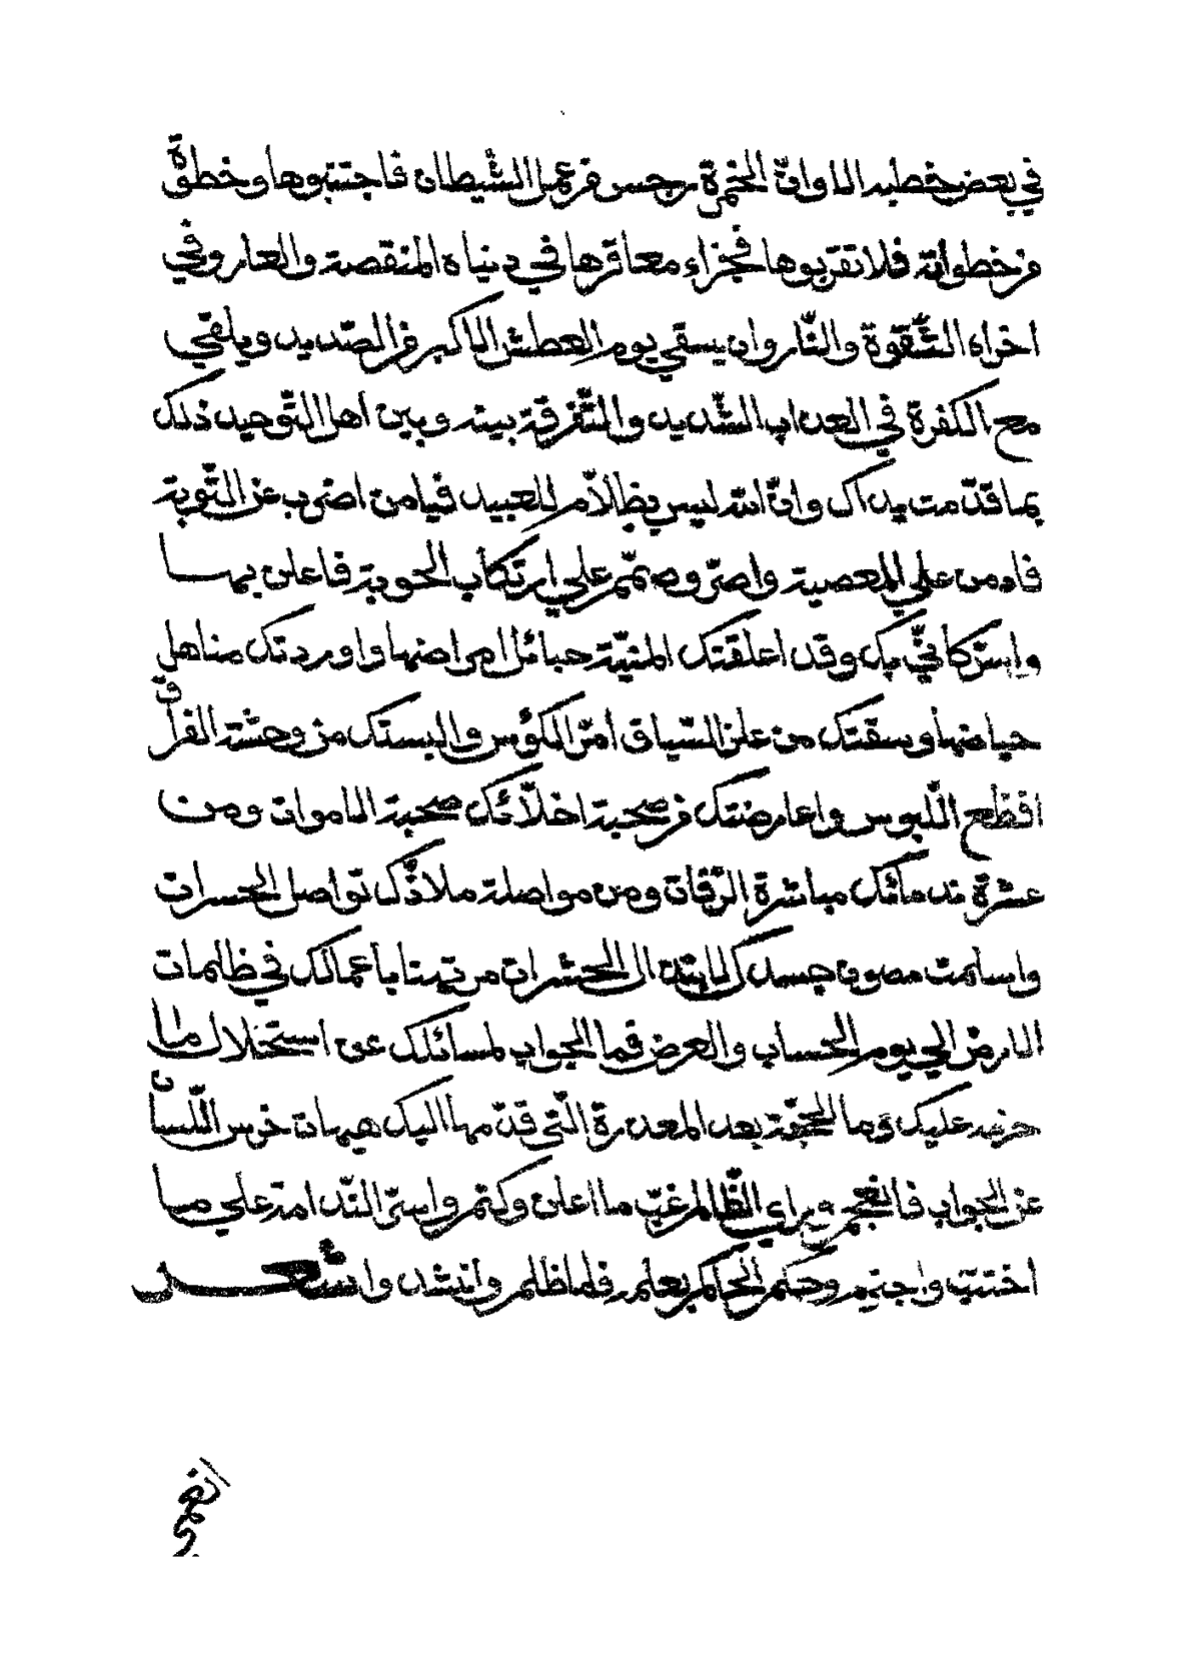 في بعض خطبه الا وانّ الخمرة رجس من عمل الشّيطان فاجتنبوها وخطوة
من خطواته فلا تقربوها فجزاء معاقرها في دنياه المنقصة والعار وفي
اخراه الشّقوة والنّار وان يسقي يوم العطش الاكبر من الصّديد ويلقي
مع الكفرة في العذاب الشّديد والتّفرقة بينه وبين اهل التّوحيد ذلك
بما قدّمت يداك وانّ الله ليس بظلاّم للعبيد فيا من اضرب عن التّوبة
فادمن علي المعصية واصرّ وصمّم علي ارتكاب الحوبة فاعلن بها
واسرّ كأنّي بك وقد اعلقتك المنيّة حبائل امراضها واوردتك مناهل
حياضها وسقتك من علز السّياق امرّ الكؤس والبستك من وحشة الفراق
افظع اللّبوس واعارضتك من صحبة اخلاّئك صحبة الاموات ومن
عشرة ندمائك مباشرة الرّفات ومن مواصلة ملاذّك تواصل الحسرات
واسلمت مصون جسدك لابتذال الحشرات مرتهنا باعمالك في ظلمات
الارض الي يوم الحساب والعرض فما الجواب لمسائلك عن استحلال ما
حرمه عليك وما الحجّة بعد المعذرة الّتي قدّمها اليك هيهات خرس اللّسان
عن الجواب فانعجم وراي الظّالم غبّ ما اعلن وكتم واسرّ النّدامة علي ما
اجترم وحكم الحاكم بعلمه فما ظلم وانشد وا شعر